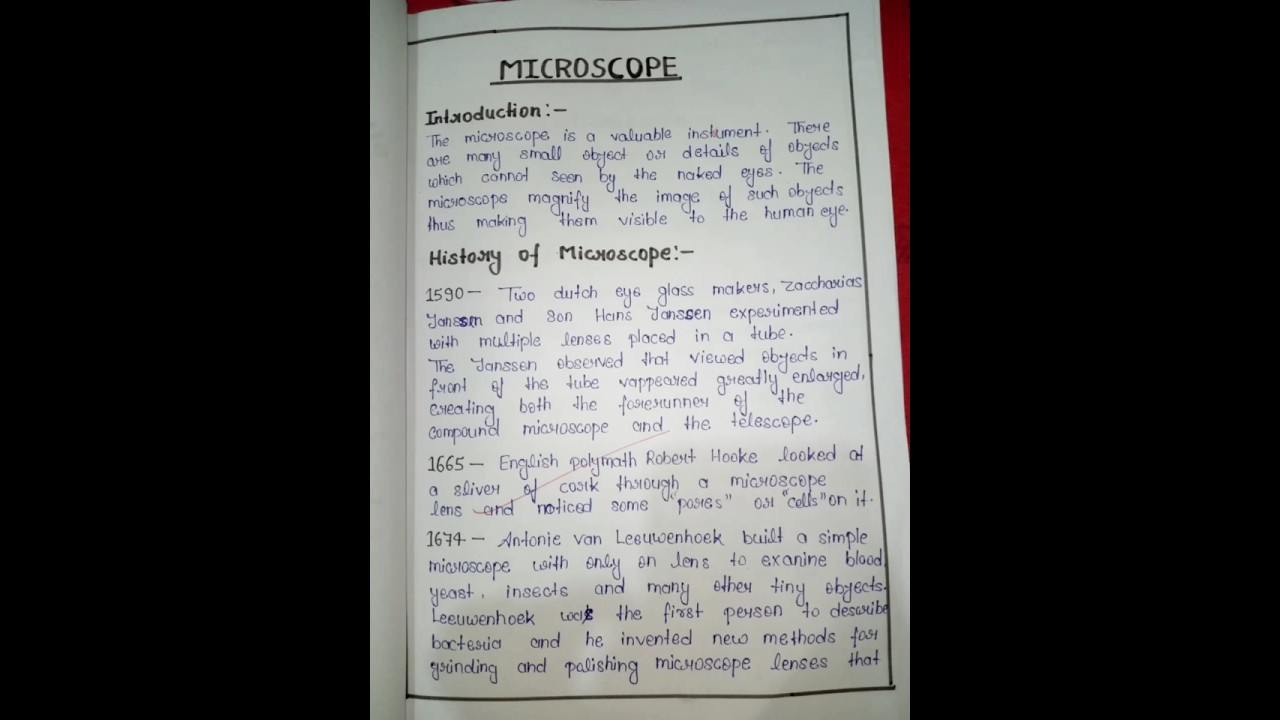 MICROSCOPE
Introduction:-
The microscope is a valuable instument. There
are many small object or details of objects
which cannot seen by the naked eyes. The
microscope magnify the image of such objects
thus making them visible to the human eye.
History of Microscope:-
1590- Two dutch eye glass makers, Zaccharias
Janssen and Son Hans Janssen experimented
with multiple lenses placed in a tube.
The Janssen observed that viewed objects in
front of the tube vappeared greatly enlarged,
creating both the forerunner of the
compound microscope and the telescope.
1665- English polymath Robert Hooke looked at
a sliver of cork through a microscope
lens and noticed some "pores" or "cells" on it.
1674- Antonie van Leeuwenhoek built a simple
microscope with only on lens to exanine blood,
yeast, insects and many other tiny objects.
Leeuwenhoek was the first person to describe
bacteria and he invented new methods for
grinding and palishing microscope lenses that